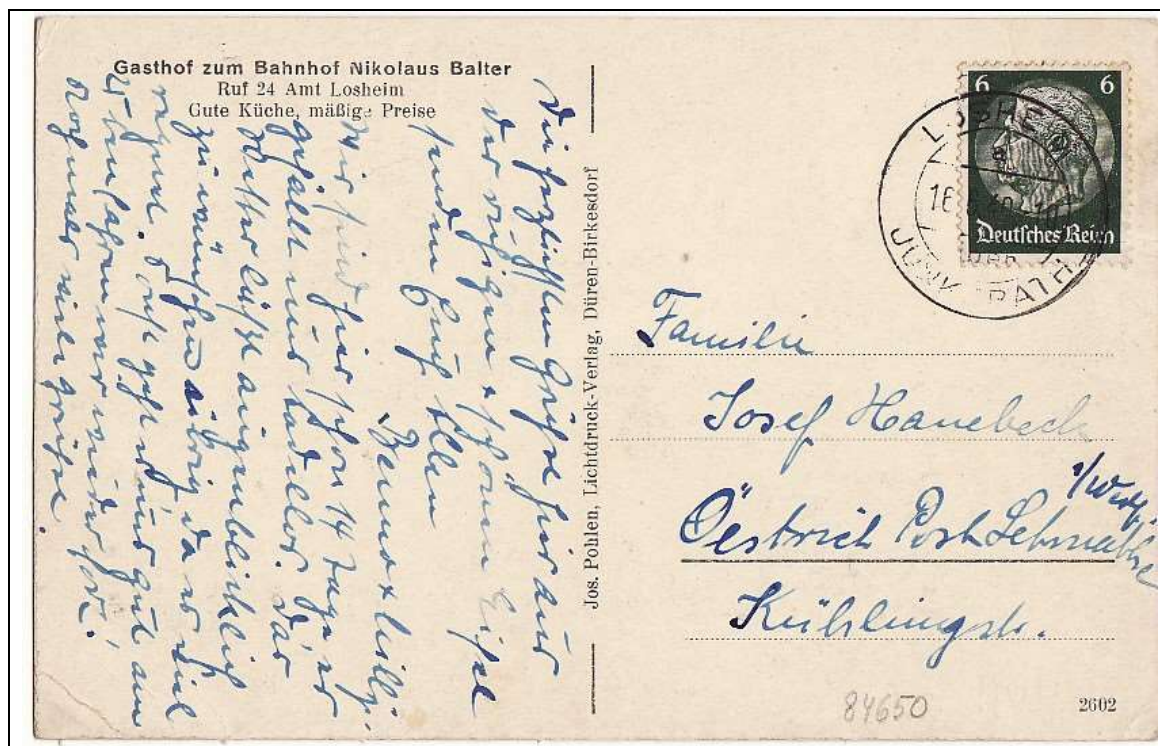 Gasthof zum Bahnhof Nikolaus Balter
Ruf 24 Amt Losheim
Gute Küche, mäßige Preise
Die herzlichsten Grüße hier aus
der ruhigen + schönen Eifel
senden Euch Allen
Benno + Willy.
Wir sind hier schon 14 Tage, es
gefällt uns tadellos. Das
Wetter läßt augenblicklich
zu wünschen übrig, da es viel
regnet. Sonst geht es uns gut am
fahren wir wieder fort.
Nochmals viele Grüße.
Jos. Pohlen, Lichtdruck-Verlag, Düren-Birkesdorf
6 6
Deutsches Reich
LOSHEIM
16
JÜNKERATH
Familie
Josef Hanebeck
Östrich Post Letmathe
i/Westf.
Kühlingstr.
84650
2602